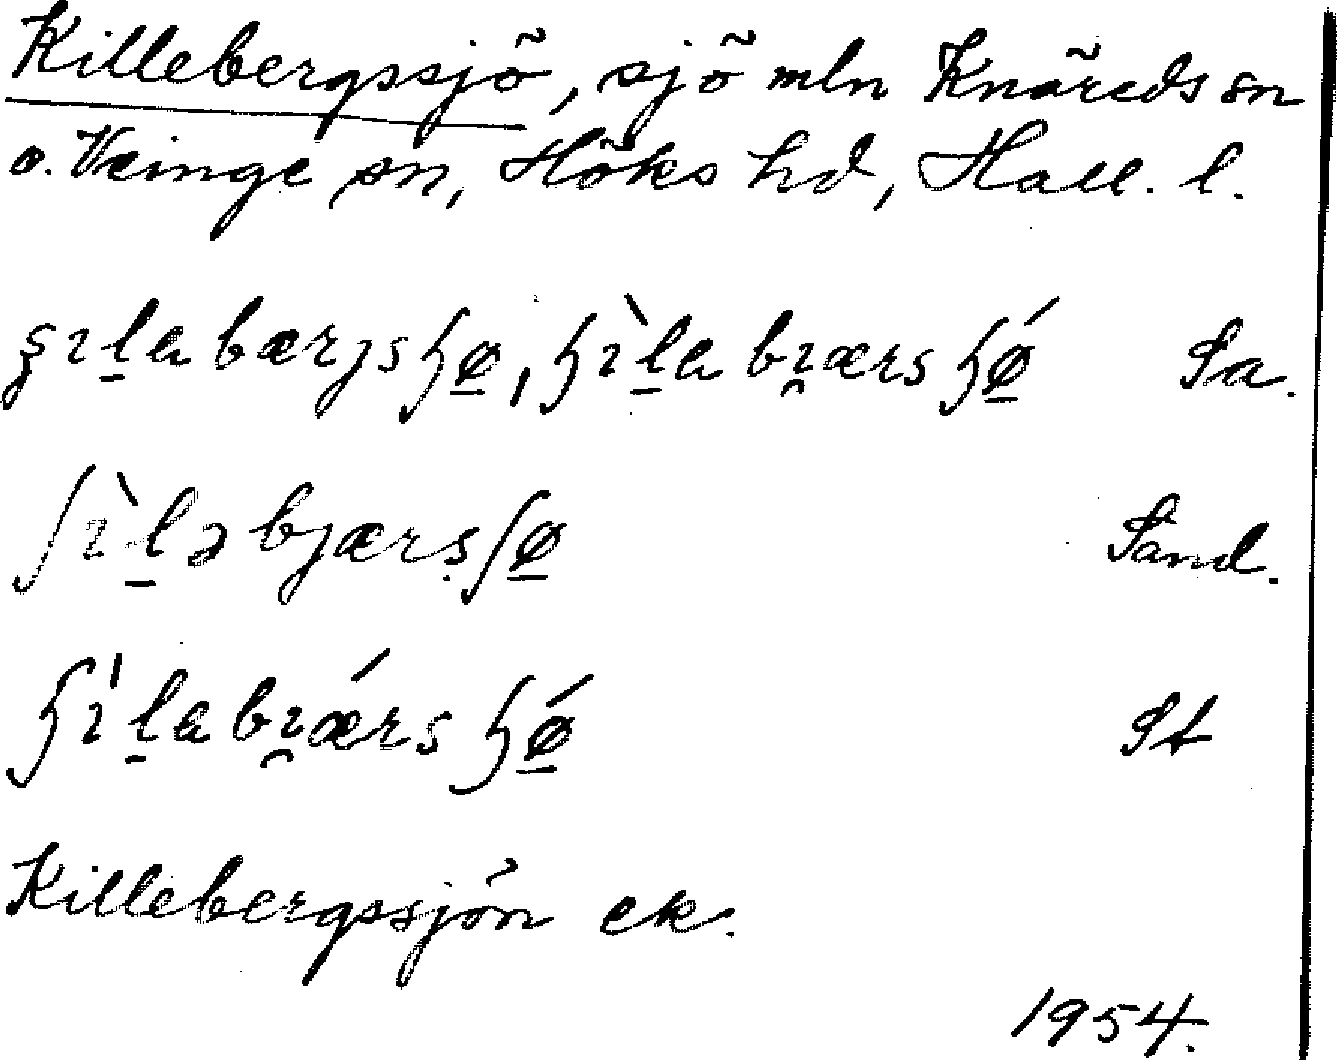 Killebergssjö, sjö mln Knäreds sn
o. Veinge sn, Höks hd, Hall. l.
ʂɪḻabærjsɧø̱, ɧɪ̀ḻabɪ̯ærsɧǿ̱ Sa.
ʃɪ̀ḻəbjærṣʃø̱ Sand.
ɧɪ̀ḻabɪ̯ǽrsɧǿ̱ St
Killebergssjön ek.
1954.